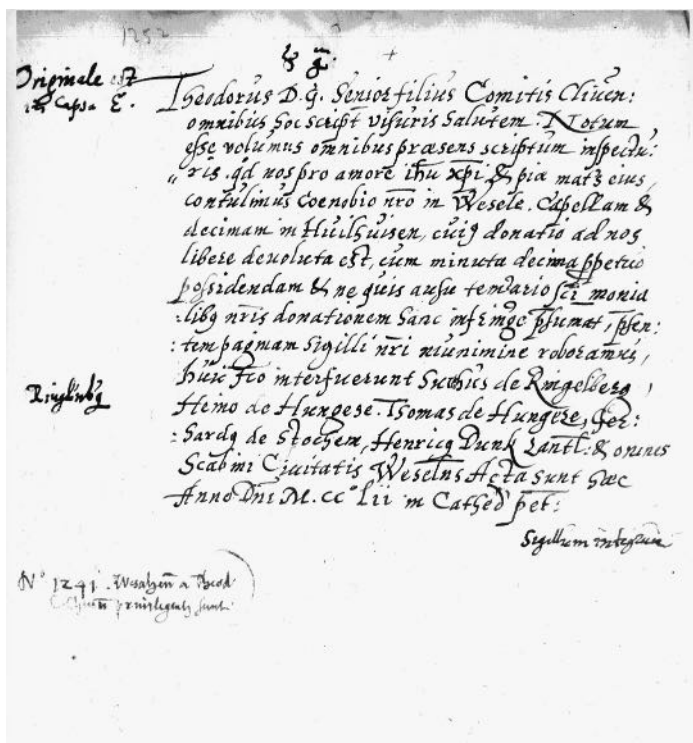 1252
Originale est
in Capsa E.
Theodorus D. g. Senior filius Comitis Cliuen:
omnibus hoc script visuris Salutem. Notum
esse volumus omnibus praesens scriptum inspectu:
ris. qd nos pro amore ihu xpi & piae matris eius,
contulimus Coenobio nro in Wesele. Capellam &
decimam in Huilhuisen, cuiq donatio ad nos
libere deuoluta est, cum minuta decima ppetuo
possidendam & ne quis ausu temerario sci monia
:libq nris donationem hanc infringe psumat, psen:
:tem paginam Sigilli nri munimine roboramus,
huic fco interfuerunt Suthus de Ringelberg,
Heino de Hungese. Thomas de Hungere, Ger:
:hardq de Stochem, Henricq Dunk Lantl: & omnes
Scabini Ciuitatis Weselns Acta sunt haec
Anno Dni M. CC° Lii in Cathed pet:
Sigillum integrum
Ringlnbq
N° 1241. Wesalien a Theod
privilegiati sunt